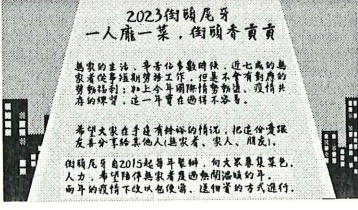 2023街頭尾牙
一人廊一菜，街頭香貢貢
無家的生活，辛苦佔多數時候，近七成的無
家者從事短期勞務工作，但是不會有對應的
勞動福利；加上今年國際情勢動盪、疫情共
存的練習，這一年實在過得不容易。
希望大家在手邊有餘裕的情況，把這份愛跟
友善分享給其他人（無家者、家人、朋友）。
街頭尾牙自2015起每年舉辦，向大眾募集菜色、
人力，希望陪伴無家者度過熱鬧溫暖的年。
兩年的疫情下改以包便當、送物資的方式進行。